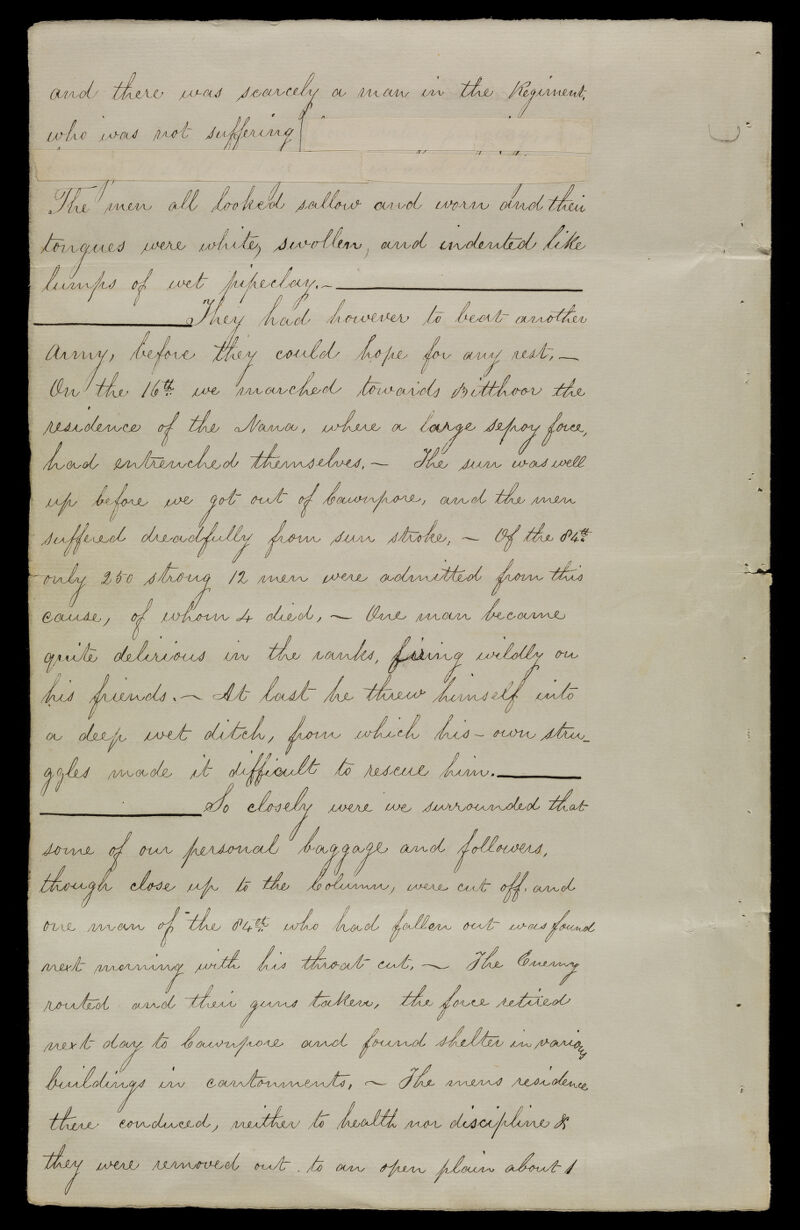 and there was scarcely a man in the Regiment,
who was not suffering
The men all looked sallow and worn and their
tongues were white, swollen, and indented like
lumps of wet pipeclay. —
They had however to beat another
Army, before they could hope for any rest. —
On the 16th. we marched towards Bitthoor the
residence of the Nana, where a large sepoy force,
had entrenched themselves. — The sun was well
up before we got out of Cawnpore, and the men
suffered dreadfully from sun stroke, — Of the 84th.
only 250 strong 12 men were admitted from this
cause, of whom 4 died, — One man became
quite delirious in the ranks, firing wildly on
his friends. — At last he threw himself into
a deep wet ditch, from which his - own stru-
ggles made it difficult to rescue him. —
So closely were we surrounded that
some of our personal baggage and followers,
though close up to the Column, were cut off. and
one man of the 84th. who had fallen out was found
next morning with his throat cut. — The Enemy
routed and their guns taken, the force retired
next day to Cawnpore and found shelter in various
buildings in cantonments, — The mens residence
there conduced, neither to health nor discipline &
they were removed out to an open plain about 1